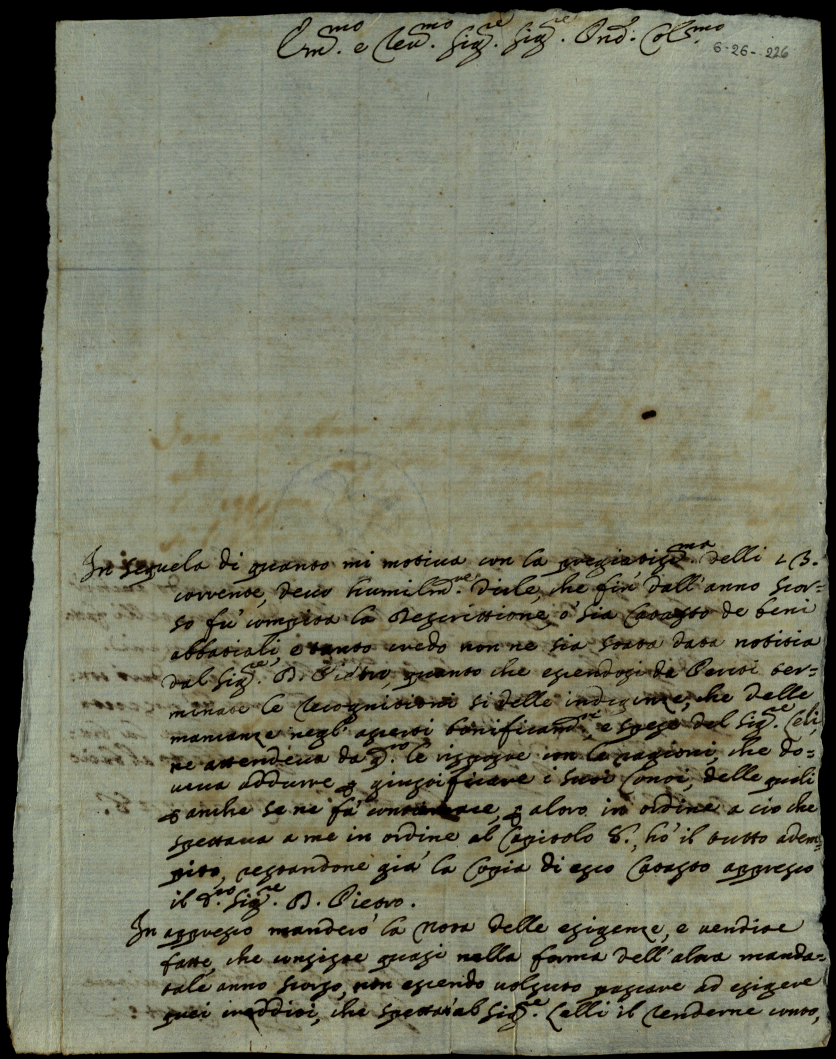 Em.mo e Reu.mo Sig.re Sig.re Pnd: Col.mo
6-26-226
In sequela di quanto mi motiua con la pregiatiss.ma delli 13.
corrente, deuo humilm.te dirle, che fin' dall'anno scor=
so fu' compita la Descrittione, ò sia Catasto de beni
abbatiali, e tanto credo non ne sia stata data notitia
dal Sig.re D. Pietro, quanto che essendosi da Periti ter=
minate le recognitioni si delle indigenze, che delle
mancanze negl'asserti bonificam.ti, e spese del Sig.re Celli,
ne attendeua da q.sto le risposte con le ragioni, che do=
ueua addurre p giustificare i suoi Conti, delle quali
p anche se ne fà contumace, p altro in ordine a ciò che
spettaua a me in ordine al Capitolo 8., hò il tutto adem=
pito, restandone già la Copia di esso Catasto appresso
il d.to Sig.re D. Pietro.
In appresso manderò la Nota delle esigenze, e vendite
fatte, che consiste quasi nella forma dell'altra manda=
tale anno scorso, non essendo uolsuto passare ad esigere
quei inredditi, che spetta al Sig.re Celli il renderne conto,